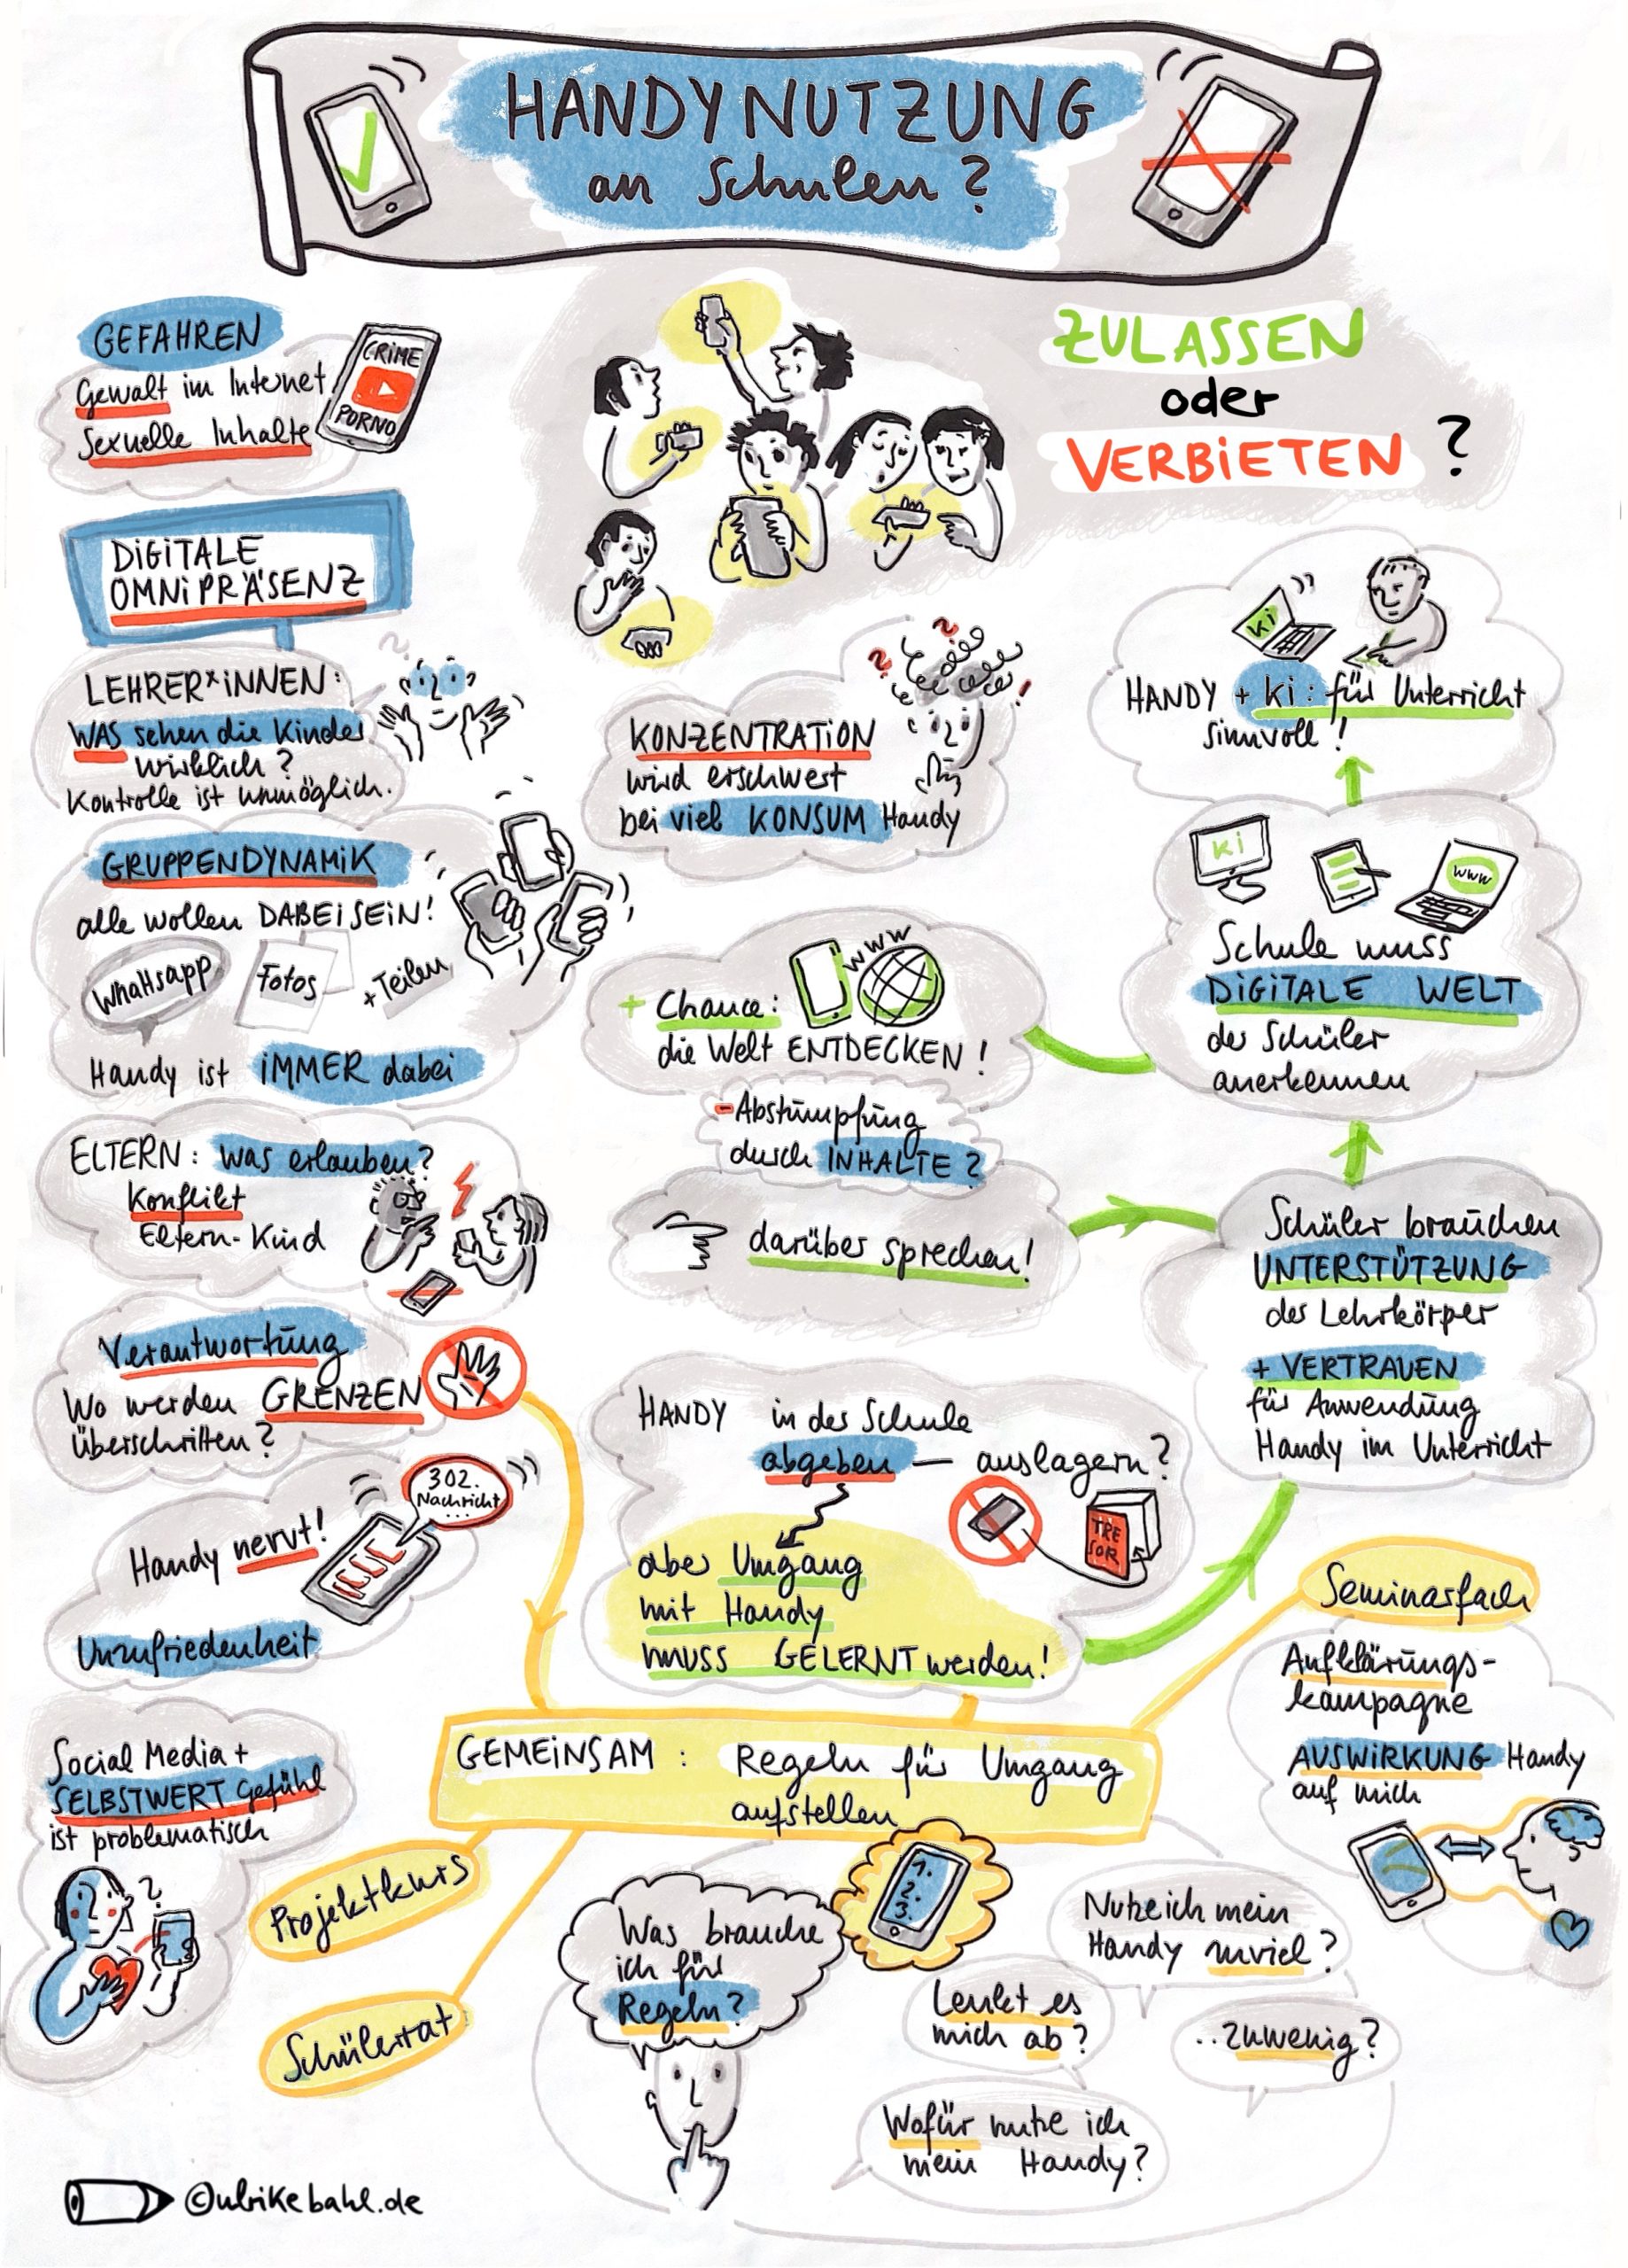 HANDYNUTZUNG
an Schulen?
ZULASSEN
oder
VERBIETEN ?
GEFAHREN
Gewalt im Internet
Sexuelle Inhalte
CRIME
PORNO
DIGITALE
OMNIPRÄSENZ
LEHRER*INNEN:
WAS sehen die Kinder
wirklich?
Kontrolle ist unmöglich.
GRUPPENDYNAMIK
alle wollen DABEI SEIN!
Whatsapp
Fotos
+Teilen
Handy ist IMMER dabei
ELTERN: was erlauben?
Konflikt
Eltern-Kind
Verantwortung
Wo werden GRENZEN
überschritten?
302.
Nachricht
...
Handy nervt!
Unzufriedenheit
Social Media +
SELBSTWERT gefühl
ist problematisch
?
KONZENTRATION
wird erschwert
bei viel KONSUM Handy
? ? !
+ Chance:
www
die Welt ENTDECKEN!
- Abstumpfung
durch INHALTE?
darüber sprechen!
HANDY in der Schule
abgeben — auslagern?
TRE
SOR
aber Umgang
mit Handy
muss GELERNT werden!
Ki
HANDY + Ki: für Unterricht
sinnvoll!
Ki
www
Schule muss
DIGITALE WELT
der Schüler
anerkennen
Schüler brauchen
UNTERSTÜTZUNG
der Lehrkörper
+ VERTRAUEN
für Anwendung
Handy im Unterricht
GEMEINSAM : Regeln für Umgang
aufstellen
Projektkurs
Schülerrat
Seminarfach
Aufklärungs-
kampagne
AUSWIRKUNG Handy
auf mich
1.
2.
3.
Was brauche
ich für
Regeln?
Nutze ich mein
Handy zuviel?
Lenkt es
mich ab?
..zuwenig?
Wofür nutze ich
mein Handy?
©ulrikebahl.de